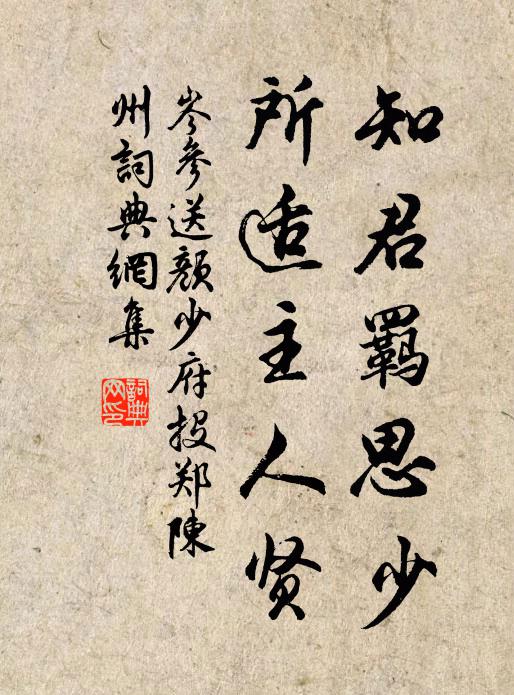 知君羁思少
所适主人贤
岑参送颜少府投郑陳
州詞典網集
詞典
网印